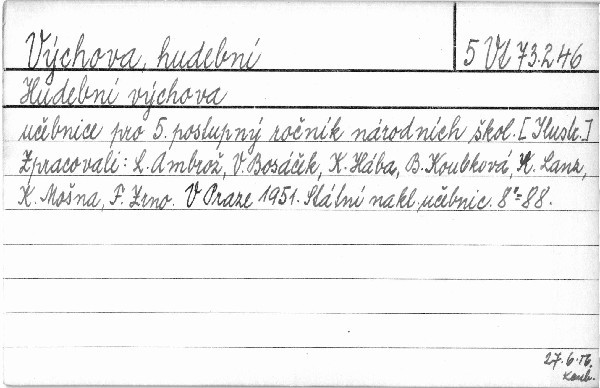 Výchova, hudební
5 Vt 73.246
Hudební výchova
učebnice pro 5. postupný ročník národních škol. [Ilustr.]
Zpracovali: L. Ambrož, V. Bosáček, K. Hába, B. Koubková, K. Lanz,
K. Mošna, F. Zrno. V Praze 1951. Státní nakl. učebnic. 8°= 88.
27.6.